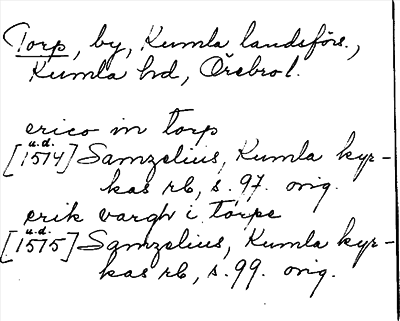 Torp, by, Kumla landsförs.,
Kumla hd, Örebro l.
erico in torp
u.d.
[1514] Samzelius, Kumla kyr-
kas rb, s. 97. orig.
erik vargh i torpe
u.d.
[1515] Samzelius, Kumla kyr-
kas rb, s. 99. orig.